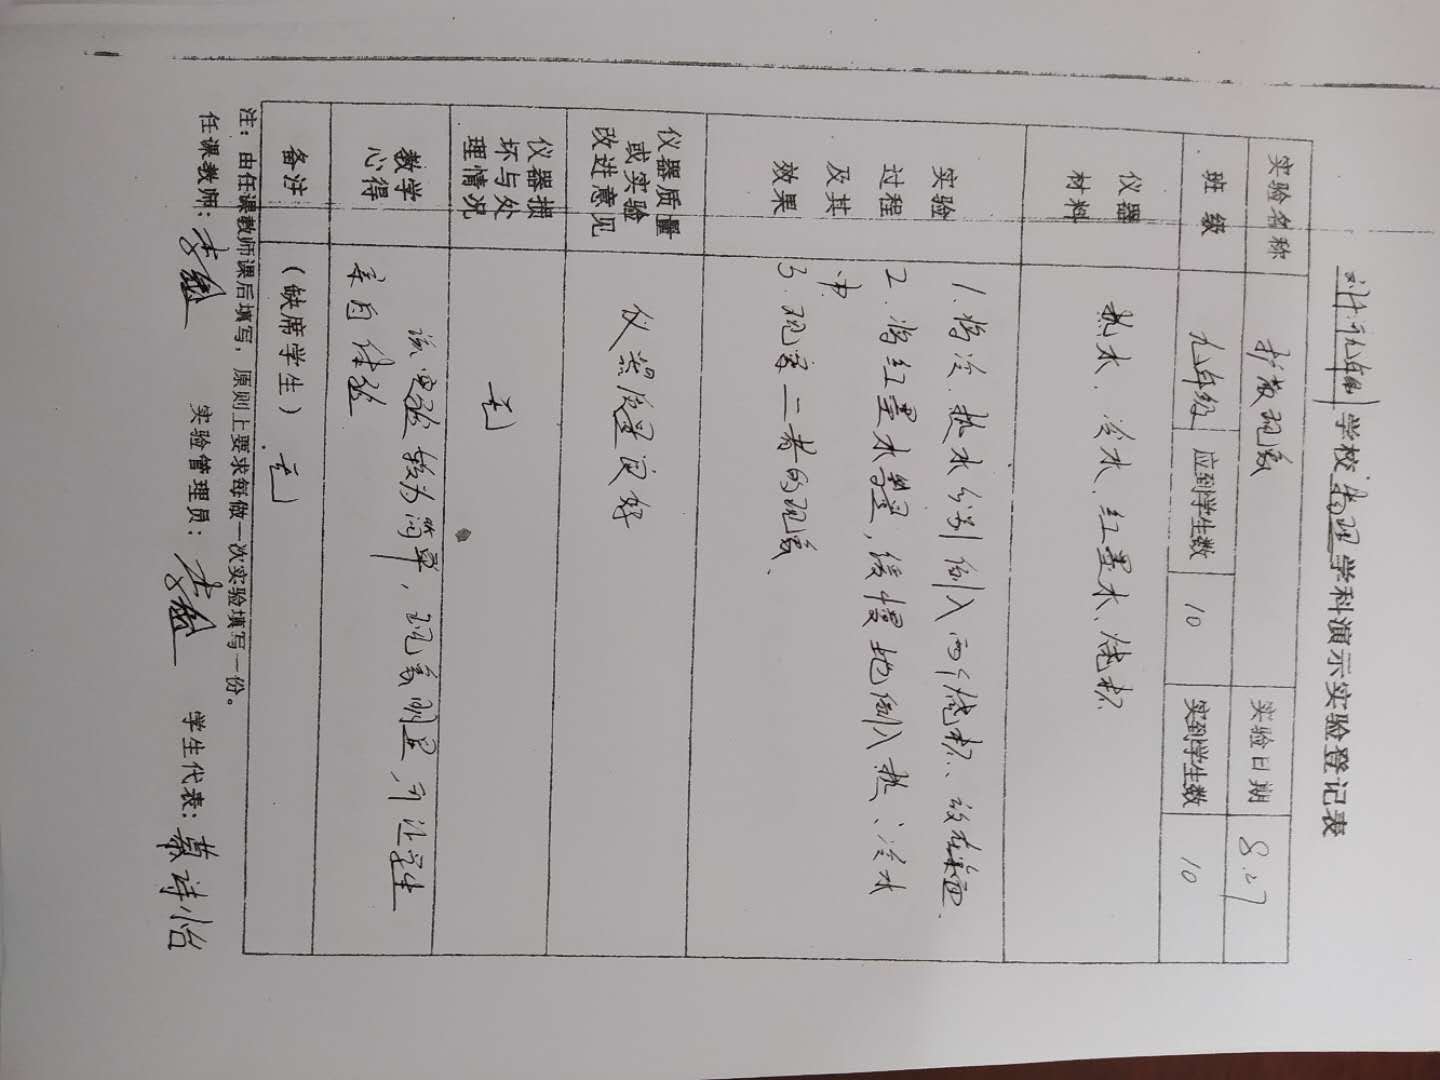 学校物理学科演示实验登记表
实验名称 扩散现象 实验日期 8.27
班级 九年级 应到学生数 10 实到学生数 10
仪器
材料
热水、冷水、红墨水、烧杯
实验
过程
及其
效果
1. 将冷、热水分别倒入两个烧杯、放在桌面、
2. 将红墨水等量,缓慢地倒入热、冷水
中.
3. 观察二者的现象、
仪器质量
或实验
改进意见
仪器质量良好
仪器损
坏与处
理情况
无
教学
心得
该实验较为简单,现象明显,可让学生
亲自体验
备注
(缺席学生) 无
注:由任课教师课后填写,原则上要求每做一次实验填写一份。
任课教师: 实验管理员: 学生代表: 诗怡